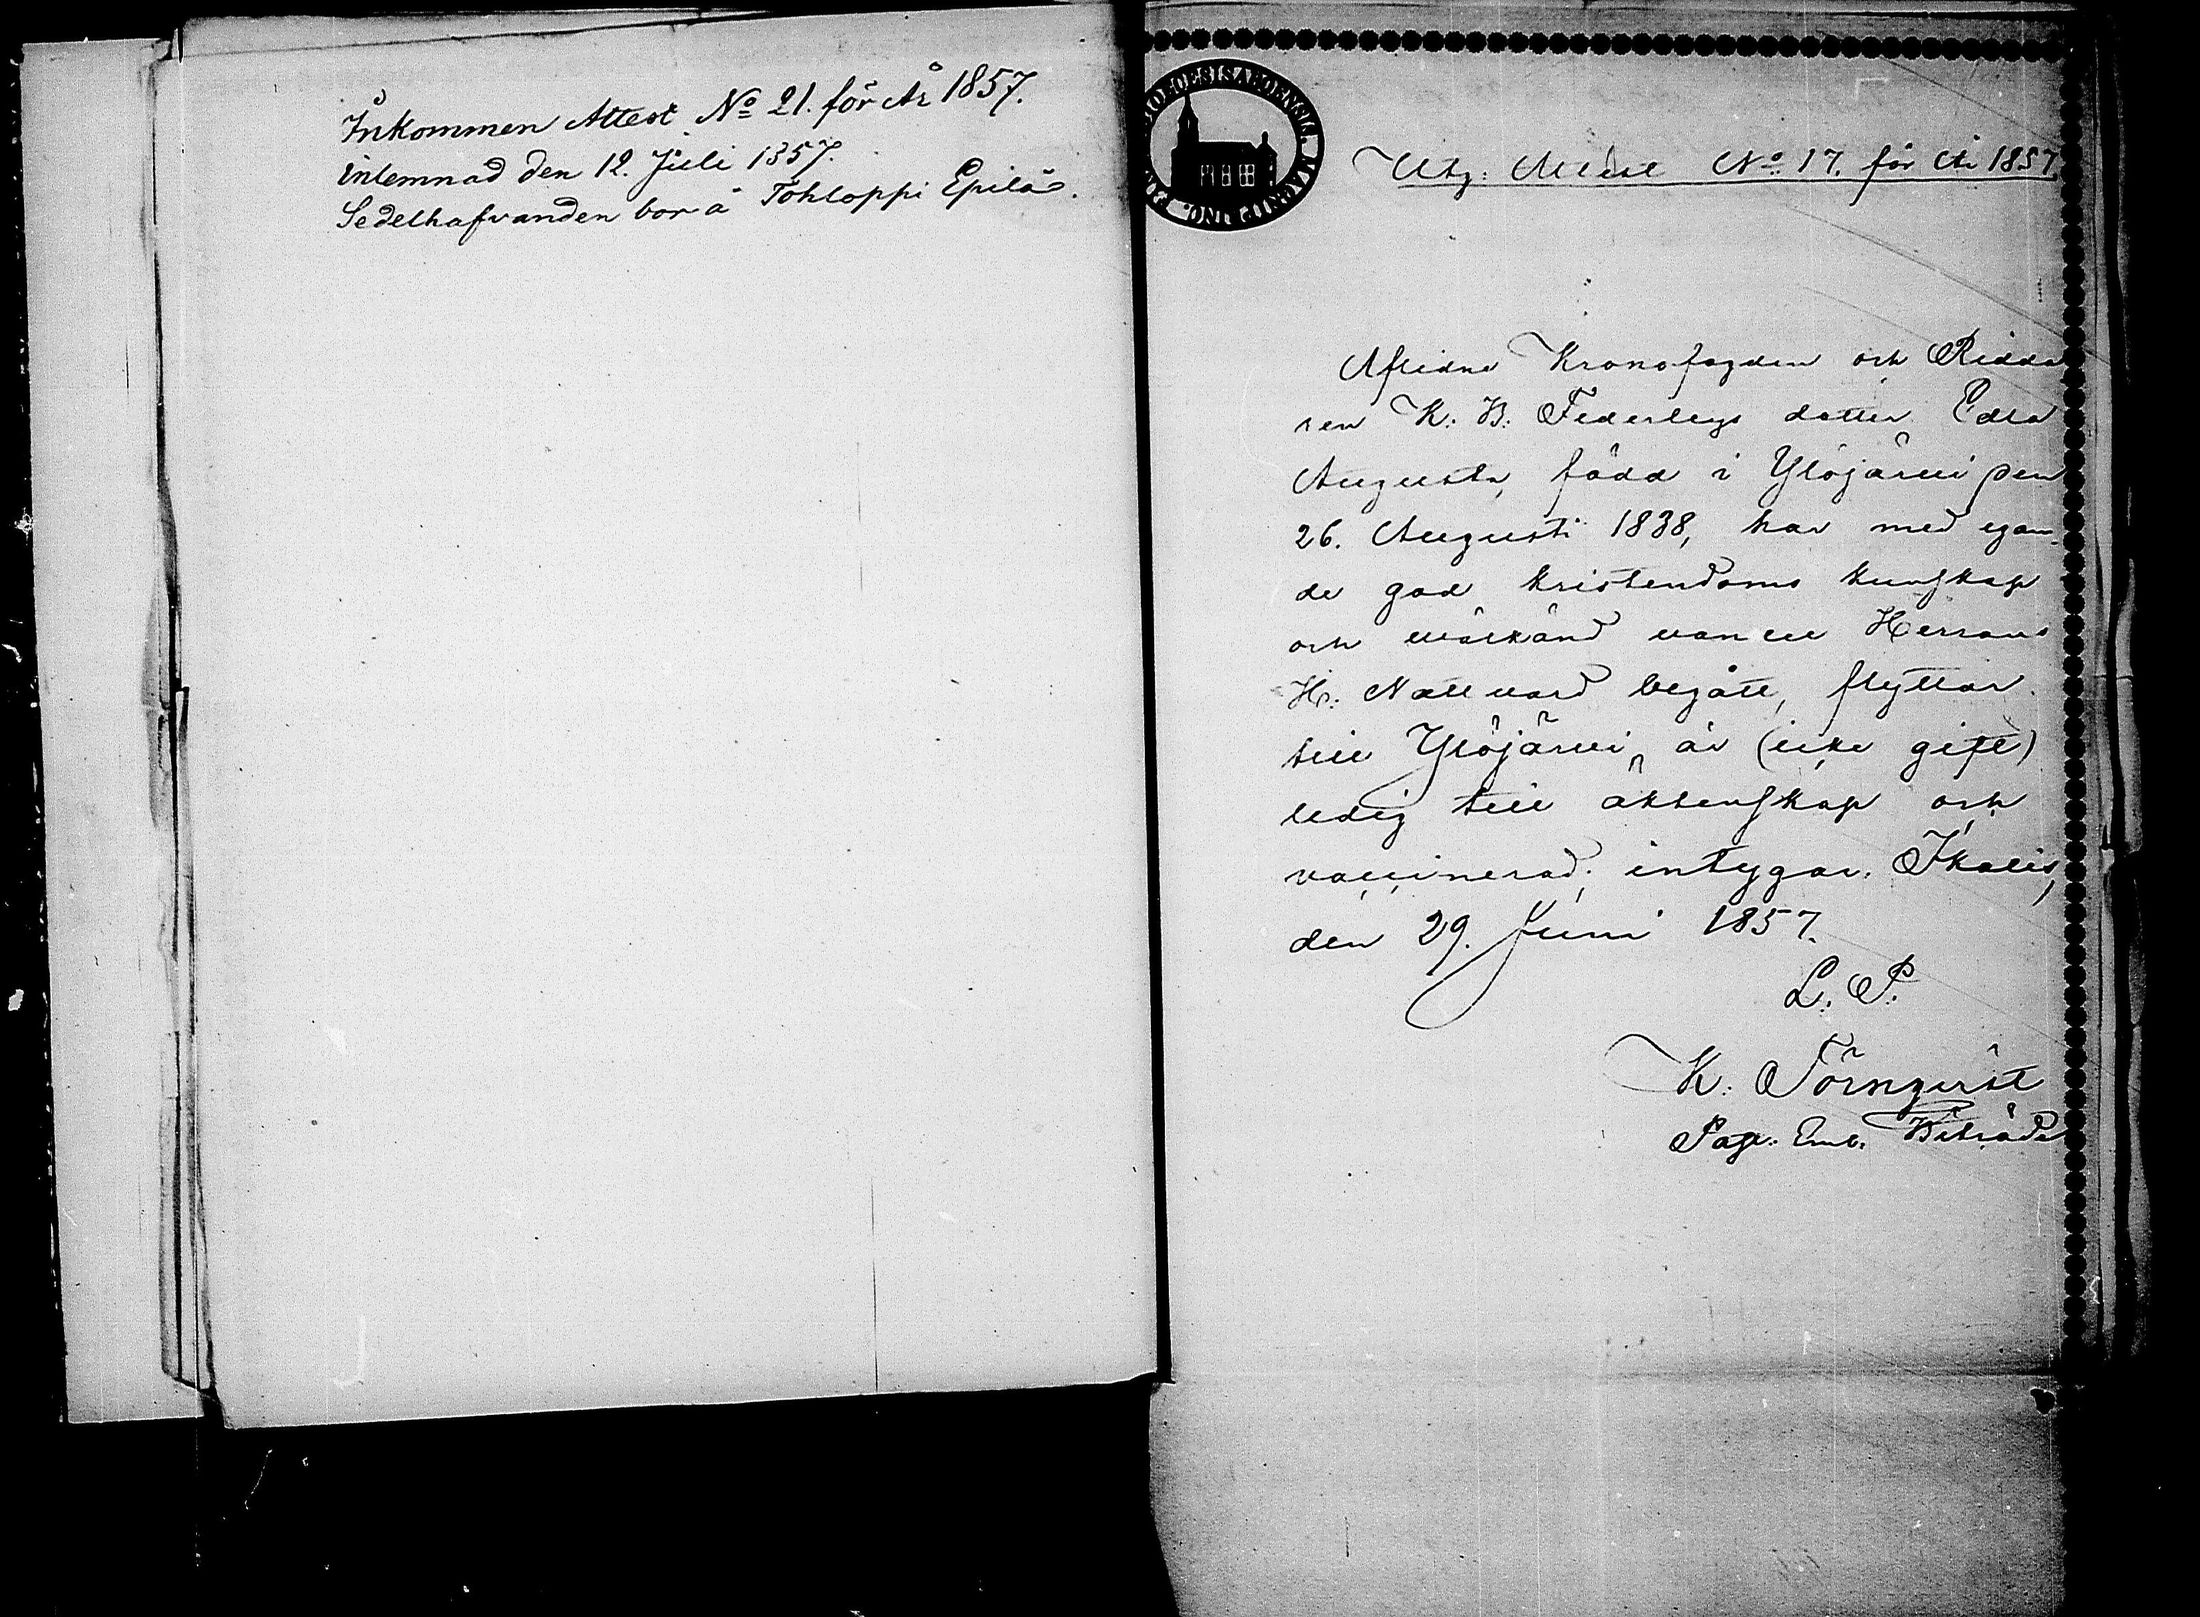 Inkommen Attest No 21. för År 1857.
inlemnad den 12. Juli 1857.
Sedelhafvanden bor å Tohloppi Epilä.
Utg: Attest No 17. för År 1857
Aflidne Kronofogden och Ridda
ren K. B. Federleys dotter Edla
Augusta, född i Ylöjärvi den
26. Augusti 1838, har med egan-
de god kristendoms kunskap
och välkänd vandel Herrans
H. Nattvard begått, flyttar
till Ylöjärvi, är (icke gift)
ledig till äktenskap och
vaccinerad; intygar. Ikalis,
den 29. Juni 1857.
L. P.
K. Törnqvist
Past. Emb. Biträde